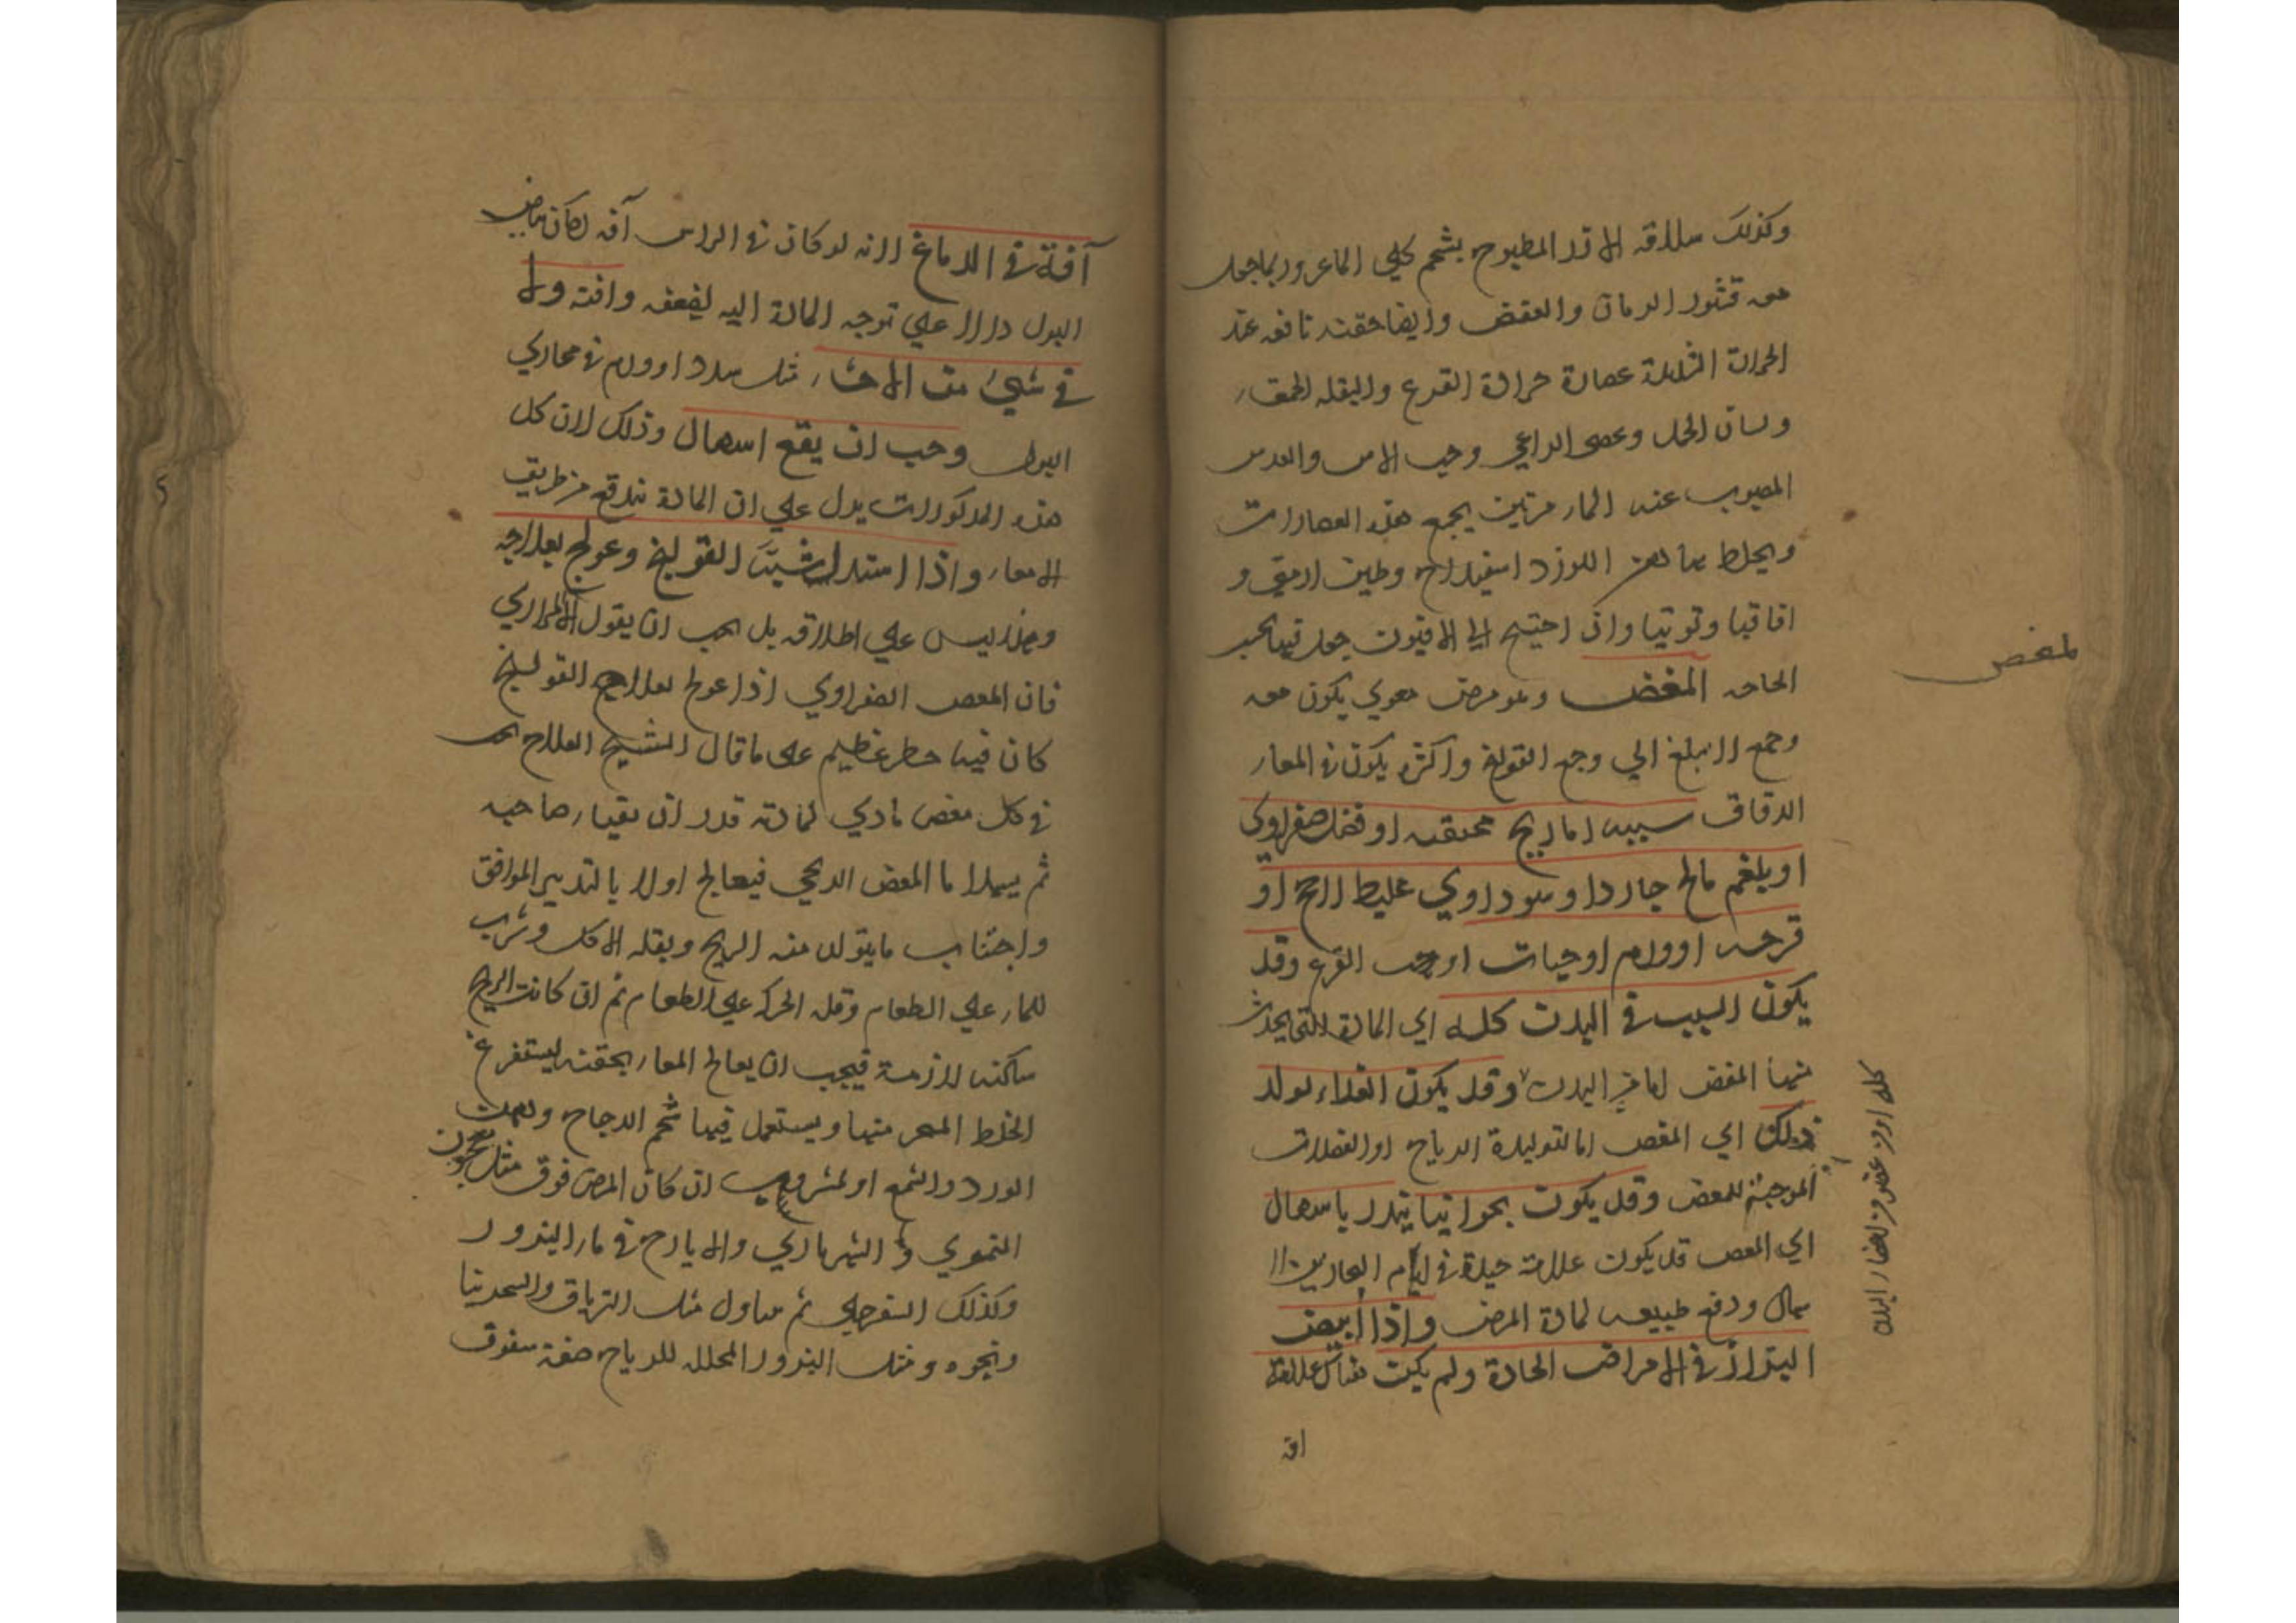 وكذلك سلاقه الارز المطبوخ بشحم كلي الماعز وربما جعل
معه قشور الرمان والعفص وايضا حقنه نافعه عند
الحرارة الشديدة عصارة خراطة القرع والبقله الحمقاء
ولسان الحمل وعصى الراعي وحب الاس والعدس
المصبوب عنه الماء مرتين يجمع هذه العصارات
ويخلط بها دهن الورد اسفيداج وطين ارمني و
اقاقيا وتوتيا وان احتيج الي الافيون جعل فيها بحسب
الحاجه المغص وهو مرض معوي يكون معه
وجع لا يبلغ الي وجع القولنج واكثره يكون في المعاء
الدقاق سببه اما ريح محتقنه او فضل صفراوي
او بلغم مالح حار د او سوداوي غليظ لاحج او
قرحه او ورم او حيات او حب القرع وقد
يكون السبب في البدن كله اي المادة التي يحدث
منها المغص اما في البدن وقد يكون الغذاء يولد
ذلك اي المغص اما لتوليدة الرياح او الفضلات
الموجبة للمغص وقد يكون بحرانيا ينذر باسهال
اي المغص قد يكون علامة جيدة في ايام البحارين لا
سهال ودفع طبيعه لمادة المرض واذا ابيض
البراز في الامراض الحادة ولم يكن هناك علامة
افة
لمغص
كله او في عضو من اعضاء البدن
آفة في الدماغ لانه لو كان في الراس آفه لكان بياض
البول دالا علي توجه المادة اليه لضعفه وافته ولا
في شيئ من الاحشاء مثل سدد او ورم في مجاري
البول وجب ان يقع اسهال وذلك لان كل
هذه المذكورات يدل علي ان المادة تندفع من طريق
الامعاء واذا اشتد اشبه القولنج وعولج بعلاجه
وهذا ليس علي اطلاقه بل يجب ان يقول الا المراري
فان المغص الصفراوي اذا عولج بعلاج القولنج
كان فيه خطر عظيم على ما قال الشيخ العلاج يجب
في كل مغص مادي لمادته قدر ان يقياء صاحبه
ثم يسهل اما المغص الريحي فيعالج اولا بالتدبير الموافق
واجتناب ما يتولد منه الريح وبقله الاكل وشرب
للماء علي الطعام وقله الحركه علي الطعام ثم ان كانت الريح
ساكنه لازمة فيجب ان يعالج المعاء بحقنه ليستفرغ
الخلط المنجر منها ويستعمل فيها شحم الدجاج ودهن
الورد والشمع او لمشروب ان كان المرض فوق مثل معجون
التمري و الشهرياري والايارج في ماء البزور
وكذلك السفرجلي ثم يتناول مثل الترياق والسحرنيا
ونحوه ومثل البزور المحلله للرياح صفة سفوف